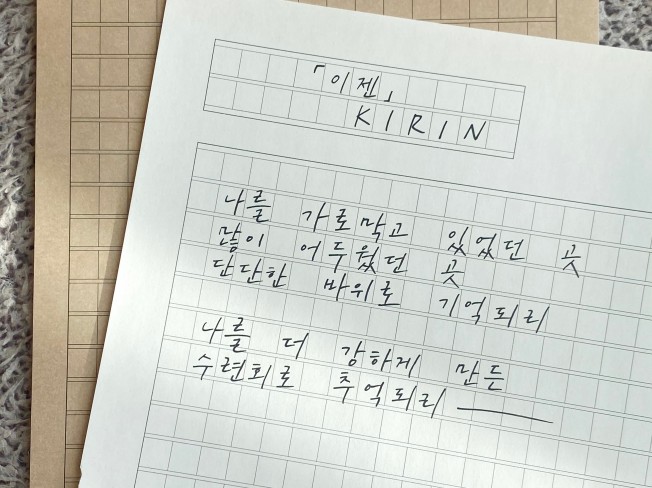 「이젠」
KIRIN
나를 가로막고 있었던 곳
많이 어두웠던 곳
단단한 바위로 기억되리
나를 더 강하게 만든
수련회로 추억되리